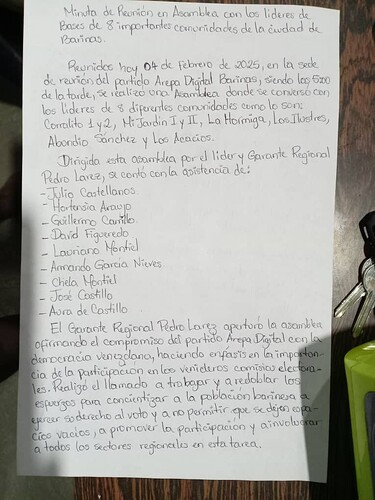 Minuta de Reunión en Asamblea con los líderes de
Bases de 8 importantes comunidades de la ciudad de
Barinas.
Reunidos hoy 04 de Febrero de 2025, en la sede
de reunión del partido Arepa Digital Barinas, siendo las 5:00
de la tarde, se realizó una Asamblea donde se conversó con
los líderes de 8 diferentes comunidades como lo son:
Corralito 1 y 2, Mi Jardín I y II, La Hormiga, Los Ilustres,
Abundio Sánchez y Los Acacios.
Dirigida esta asamblea por el líder y Garante Regional
Pedro Larez, se contó con la asistencia de:
- Julio Castellanos.
- Hortensia Araujo
- Guillermo Carrillo.
- David Figueredo
- Lauriano Montiel
- Armando García Nieves.
- Chela Montiel
- José Castillo
- Aura de Castillo
El Garante Regional Pedro Larez aperturó la asamblea
afirmando el compromiso del partido Arepa Digital con la
democracia venezolana, haciendo enfasis en la importan-
cia de la participación en los venideros comicios electora-
les. Realizó el llamado a trabajar y a redoblar los
esfuerzos para concientizar a la población barinesa a
ejercer su derecho al voto y a no permitir que se dejen espa-
cios vacios, a promover la participación y a involucrar
a todos los sectores regionales en esta tarea.